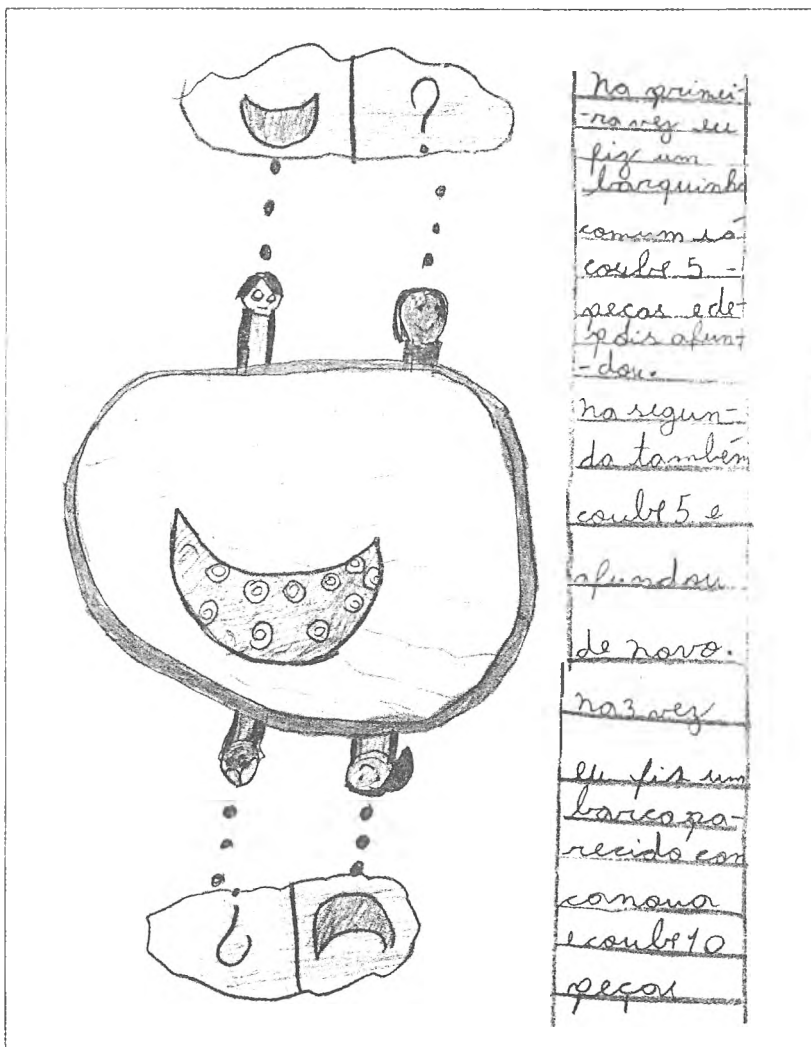 ?
Na primei-
-ra vez eu
fiz um
barquinho
comum só
coube 5 -
peças e de-
pois afun-
-dou.
na segun-
da também
coube 5 e
afundou
de novo.
na 3 vez
eu fis um
barco pa-
recido com
canoua
e coube 10
peças
?